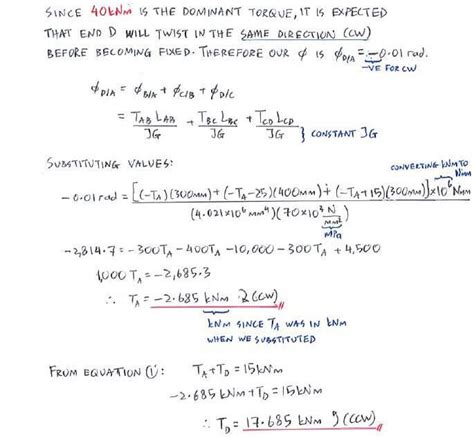 SINCE 40kNm IS THE DOMINANT TORQUE, IT IS EXPECTED
THAT END D WILL TWIST IN THE SAME DIRECTION (CW)
BEFORE BECOMING FIXED. THEREFORE OUR ϕ IS ϕD/A = -0.01 rad.
-VE FOR CW
ϕD/A = ϕB/A + ϕC/B + ϕD/C
= TAB LAB/JG + TBC LBC/JG + TCD LCD/JG } CONSTANT JG
SUBSTITUTING VALUES:
CONVERTING kNm TO Nmm
-0.01 rad = [(-TA)(300mm) + (-TA-25)(400mm) + (-TA+15)(300mm)]×10⁶ Nmm / (4.021×10⁶ mm⁴)(70×10³ N/mm²)
MPa
-2,814.7 = -300TA - 400TA - 10,000 - 300TA + 4,500
1,000 TA = -2,685.3
∴ TA = -2.685 kNm (CW)
kNm SINCE TA WAS IN kNm
WHEN WE SUBSTITUTED
FROM EQUATION ①: TA + TD = 15kNm
-2.685kNm + TD = 15kNm
∴ TD = 17.685 kNm (CCW)